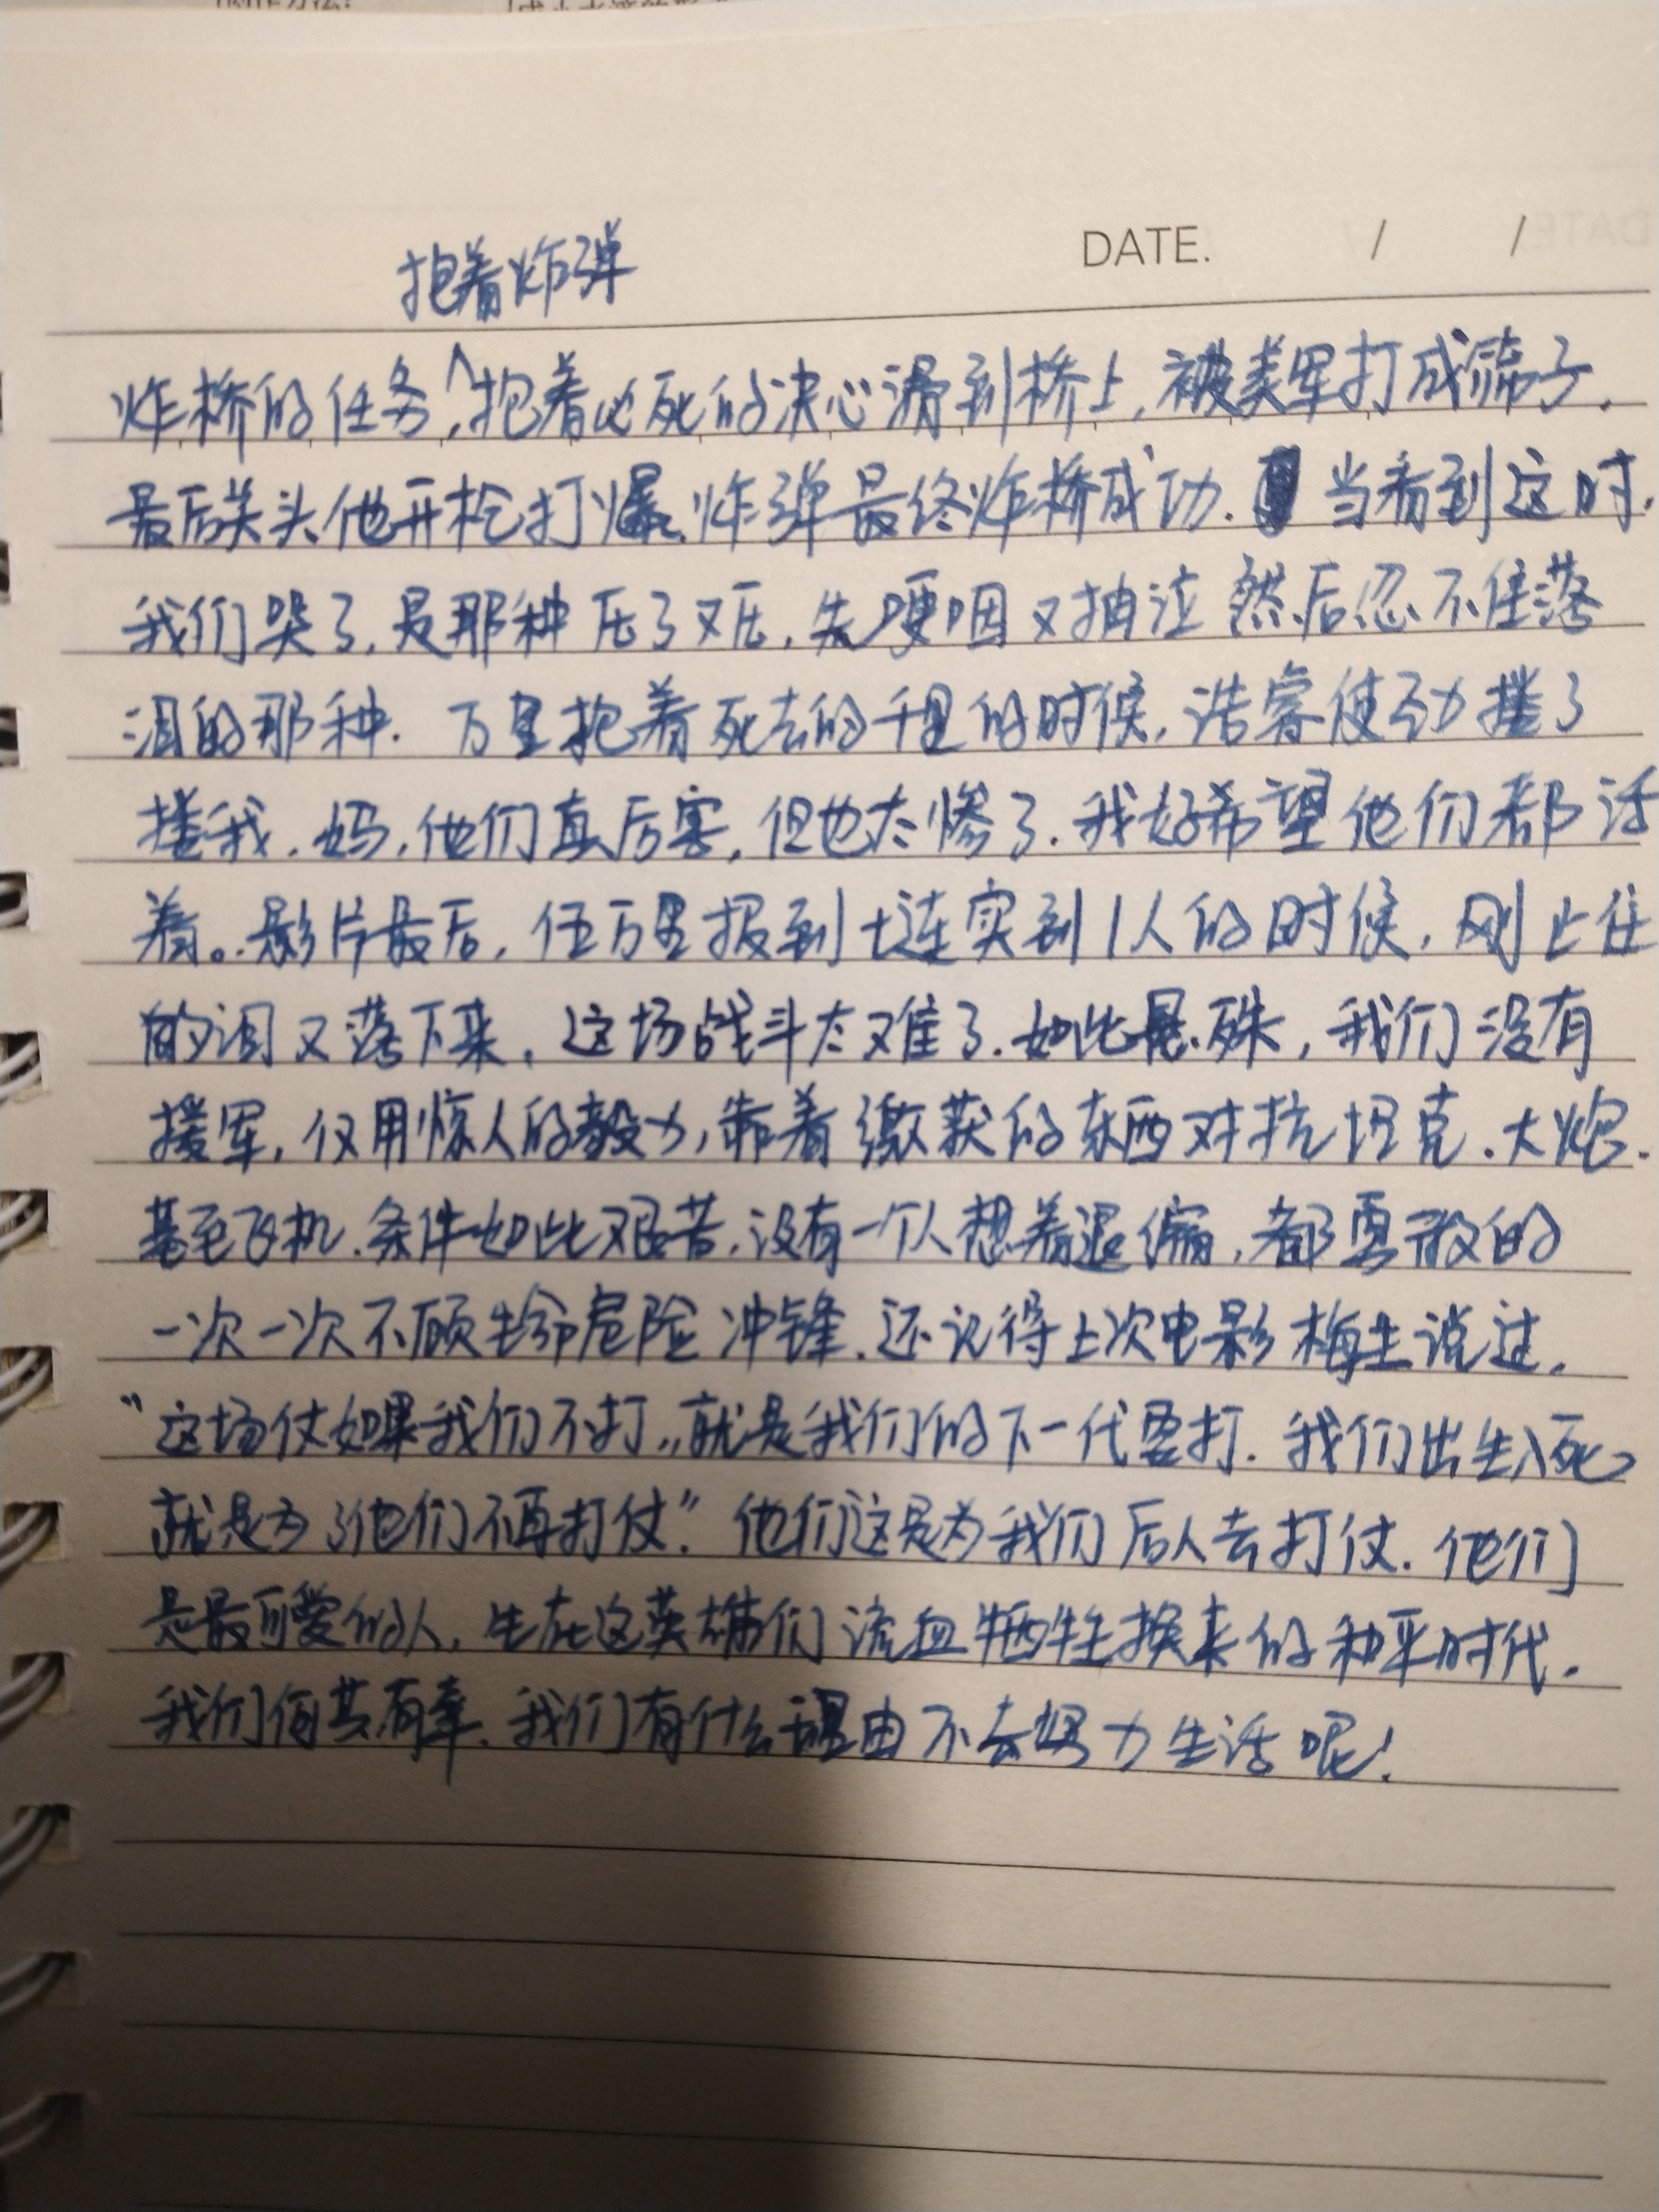 DATE. / /
抱着炸弹
炸桥的任务,抱着必死的决心滑到桥上,被美军打成筛子.
最后关头他开枪打爆炸弹最终炸桥成功. 当看到这时,
我们哭了,是那种压了又压,先哽咽又抽泣然后忍不住落
泪的那种. 万里抱着死去的千里的时候,浩睿使劲搂了
搂我.妈,他们真厉害,但也太惨了.我好希望他们都活
着。影片最后,伍万里报到七连实到1人的时候,刚止住
的泪又落下来.这场战斗太难了.如此悬殊,我们没有
援军,仅用惊人的毅力,靠着缴获的东西对抗坦克.大炮.
甚至飞机.条件如此艰苦,没有一个人想着退缩,都勇敢的
一次一次不顾生命危险冲锋.还记得上次电影梅生说过,
“这场仗如果我们不打,就是我们的下一代要打.我们出生入死
就是为了他们不再打仗”.他们这是为我们后人去打仗.他们
是最可爱的人,生在这英雄们流血牺牲换来的和平时代.
我们何其有幸.我们有什么理由不去努力生活呢!